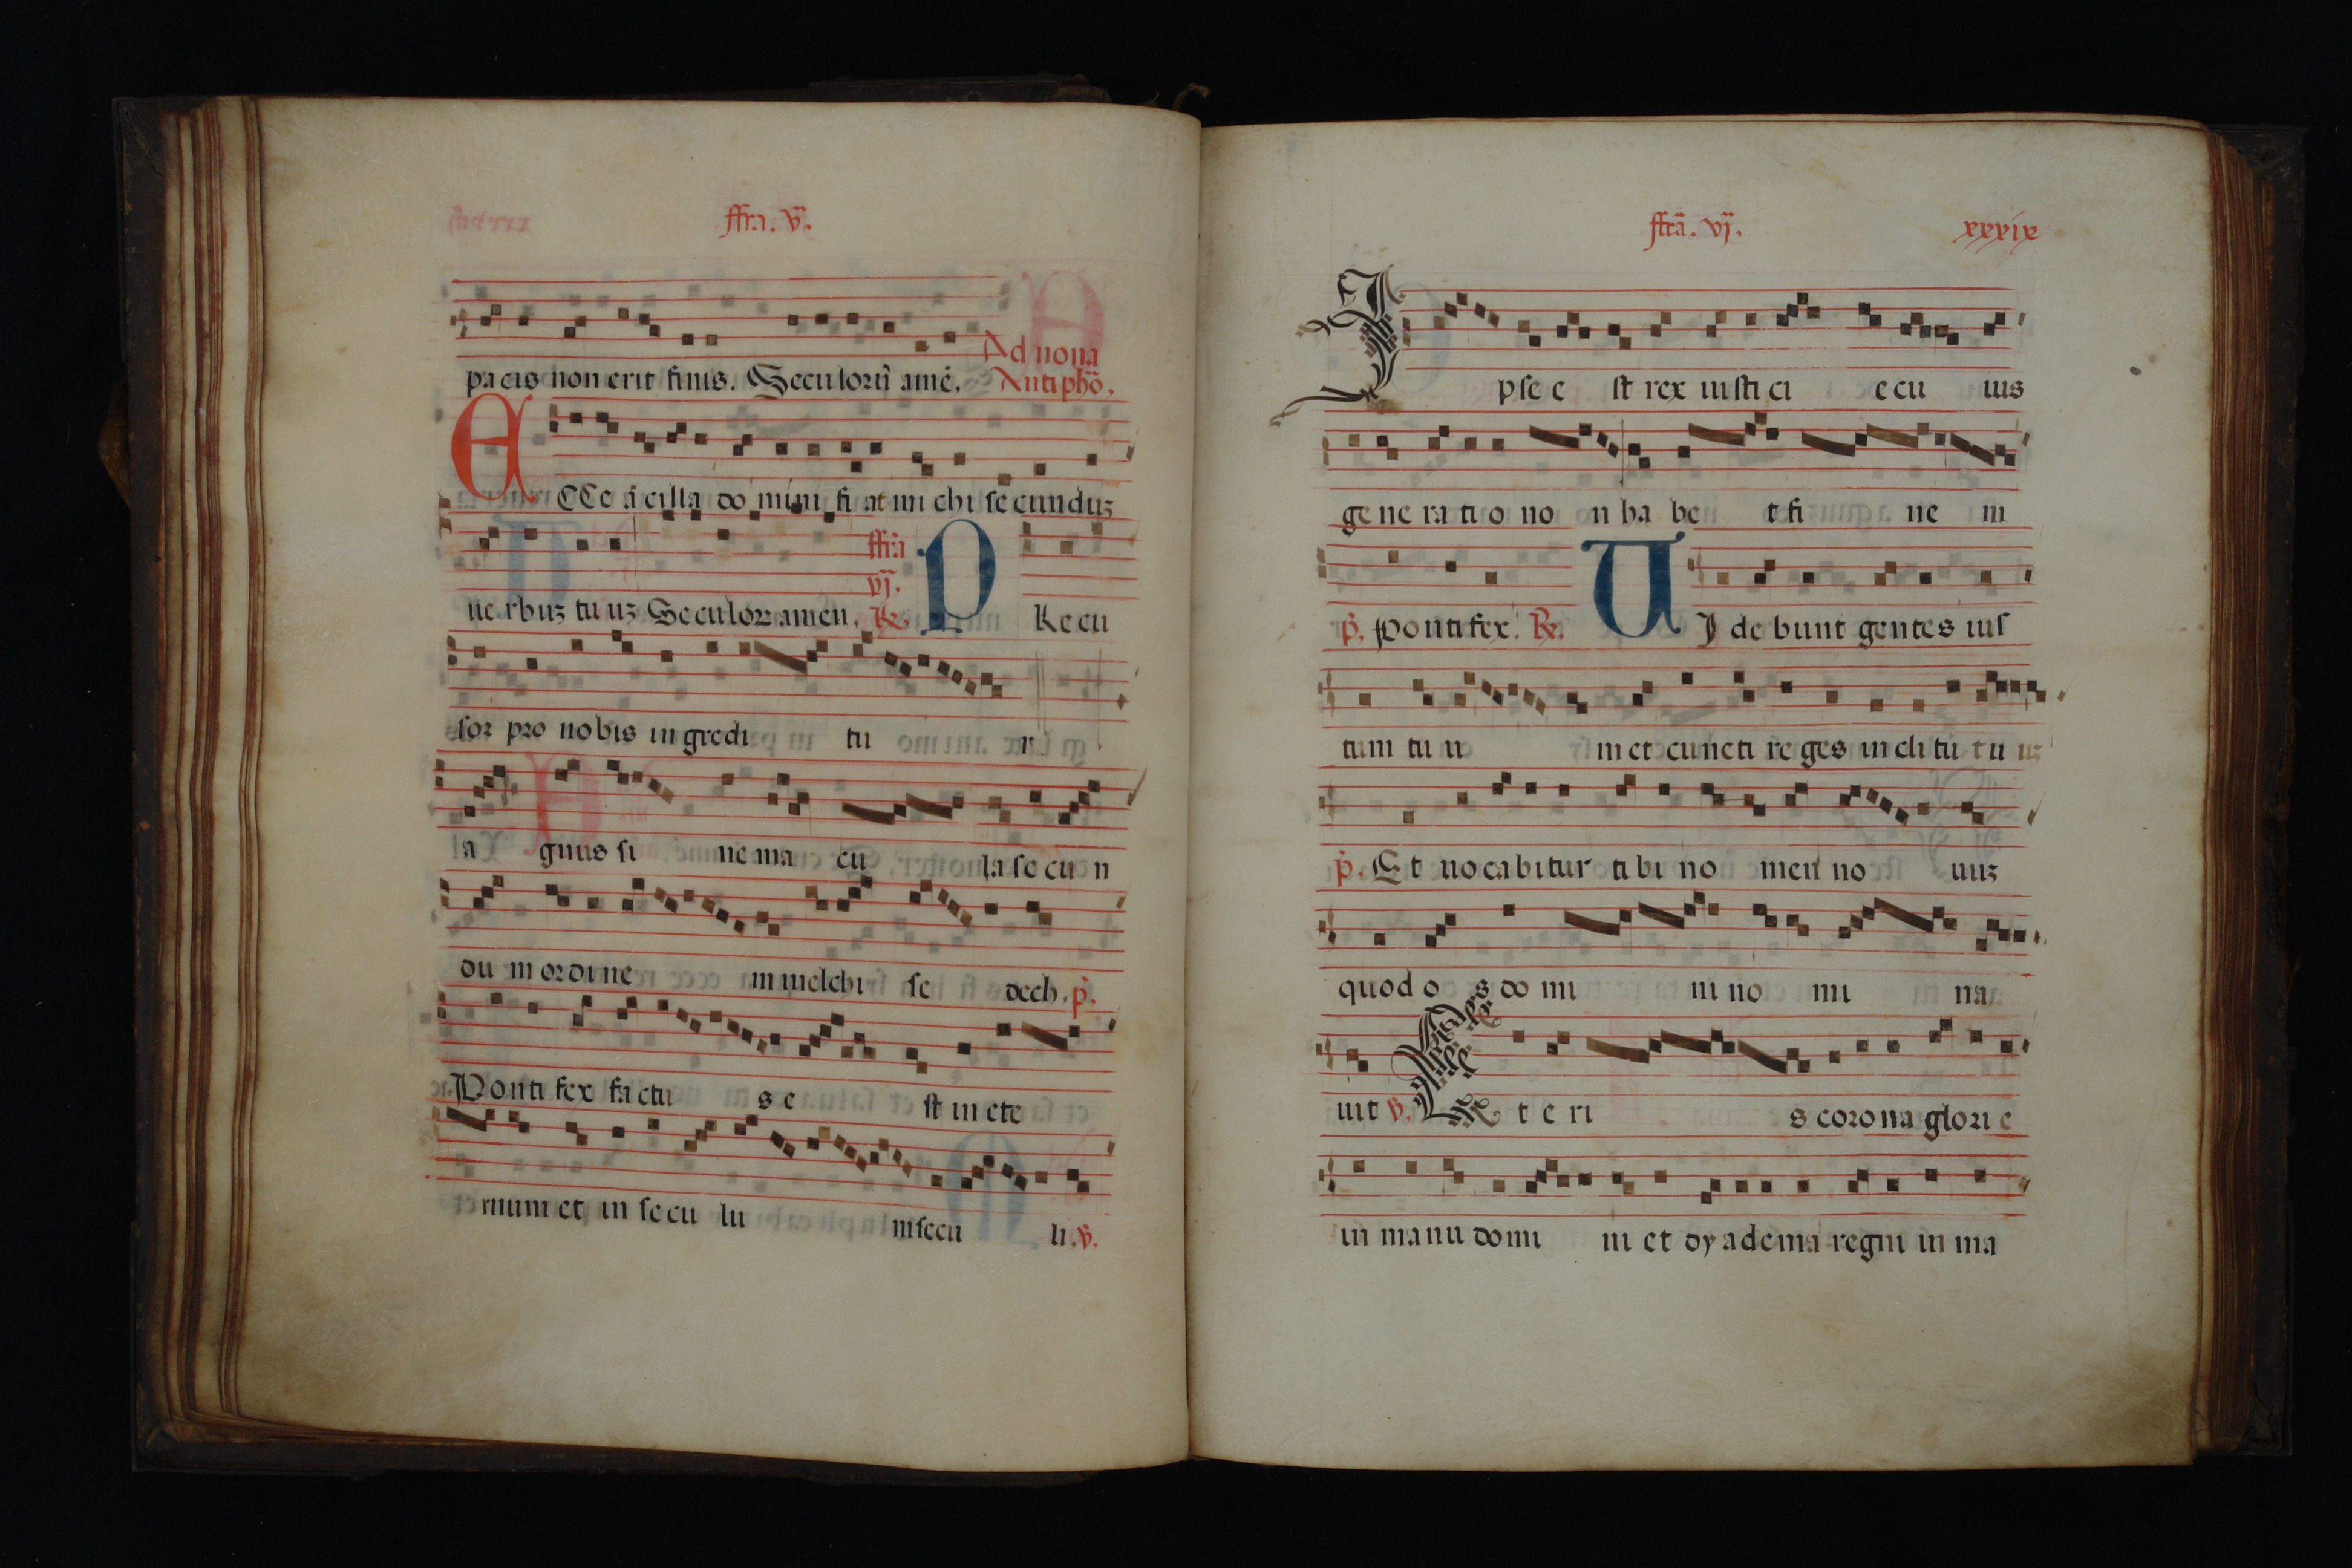 ffra. v.
pacis non erit finis. Seculorũ amẽ. Ad nona
Antiphõ.
ECCe ãcilla domini fiat michi secunduz
uerbuz tuuz Seculoꝝ amen. ffr̃a vj. ℟. PRecu
sor pro nobis ingreditur
agnus sine macula secun
dum ordinem melchisedech. p̃.
Pontifex factus est in ete
rnum et in seculum seculi. ℣.
ffrã. vj. xxxix
Ipse est rex iusticie cuius
generatio non habet finem
p̃. Pontifex. ℟. UIdebunt gentes ius
tum tuum et cuncti reges inclitum tuuz
p̃. Et uocabitur tibi nomen nouuz
quod os domini nomina
uit ℣. Et eris corona glorie
in manu domini et dyadema regni in ma